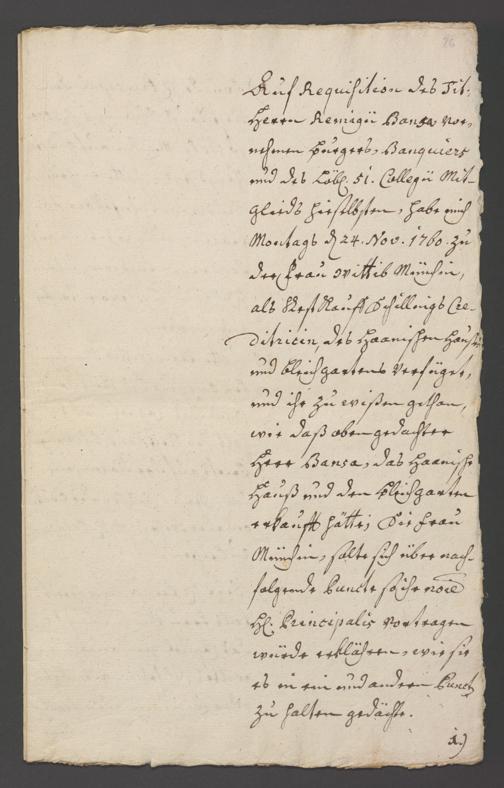 76
Auf Requisition des Tit.
Herrn Remigii Bansa vor-
nehmen burgers, Banquiers
und des Löbl. 51. Collegii Mit-
glieds hieselbsten, habe mich
Montags d 24. Nov. 1760. zu
der Frau Wittib Münchin,
als Rest Kauff Schillings Cre-
ditricin, des Haanischen Hauses
und bleichgartens verfüget,
und ihr zu wißen gethan,
wie daß oben gedachter
Herr Bansa, das Haanische
Hauß und den bleichgarten
erkaufft hätte; die Frau
Münchin, solte sich über nach-
folgende Puncte so ihr noie
H. Principalis vortragen
würde erklähren, wie sie
es in ein und andern Punct
zu halten gedächte.
1.)